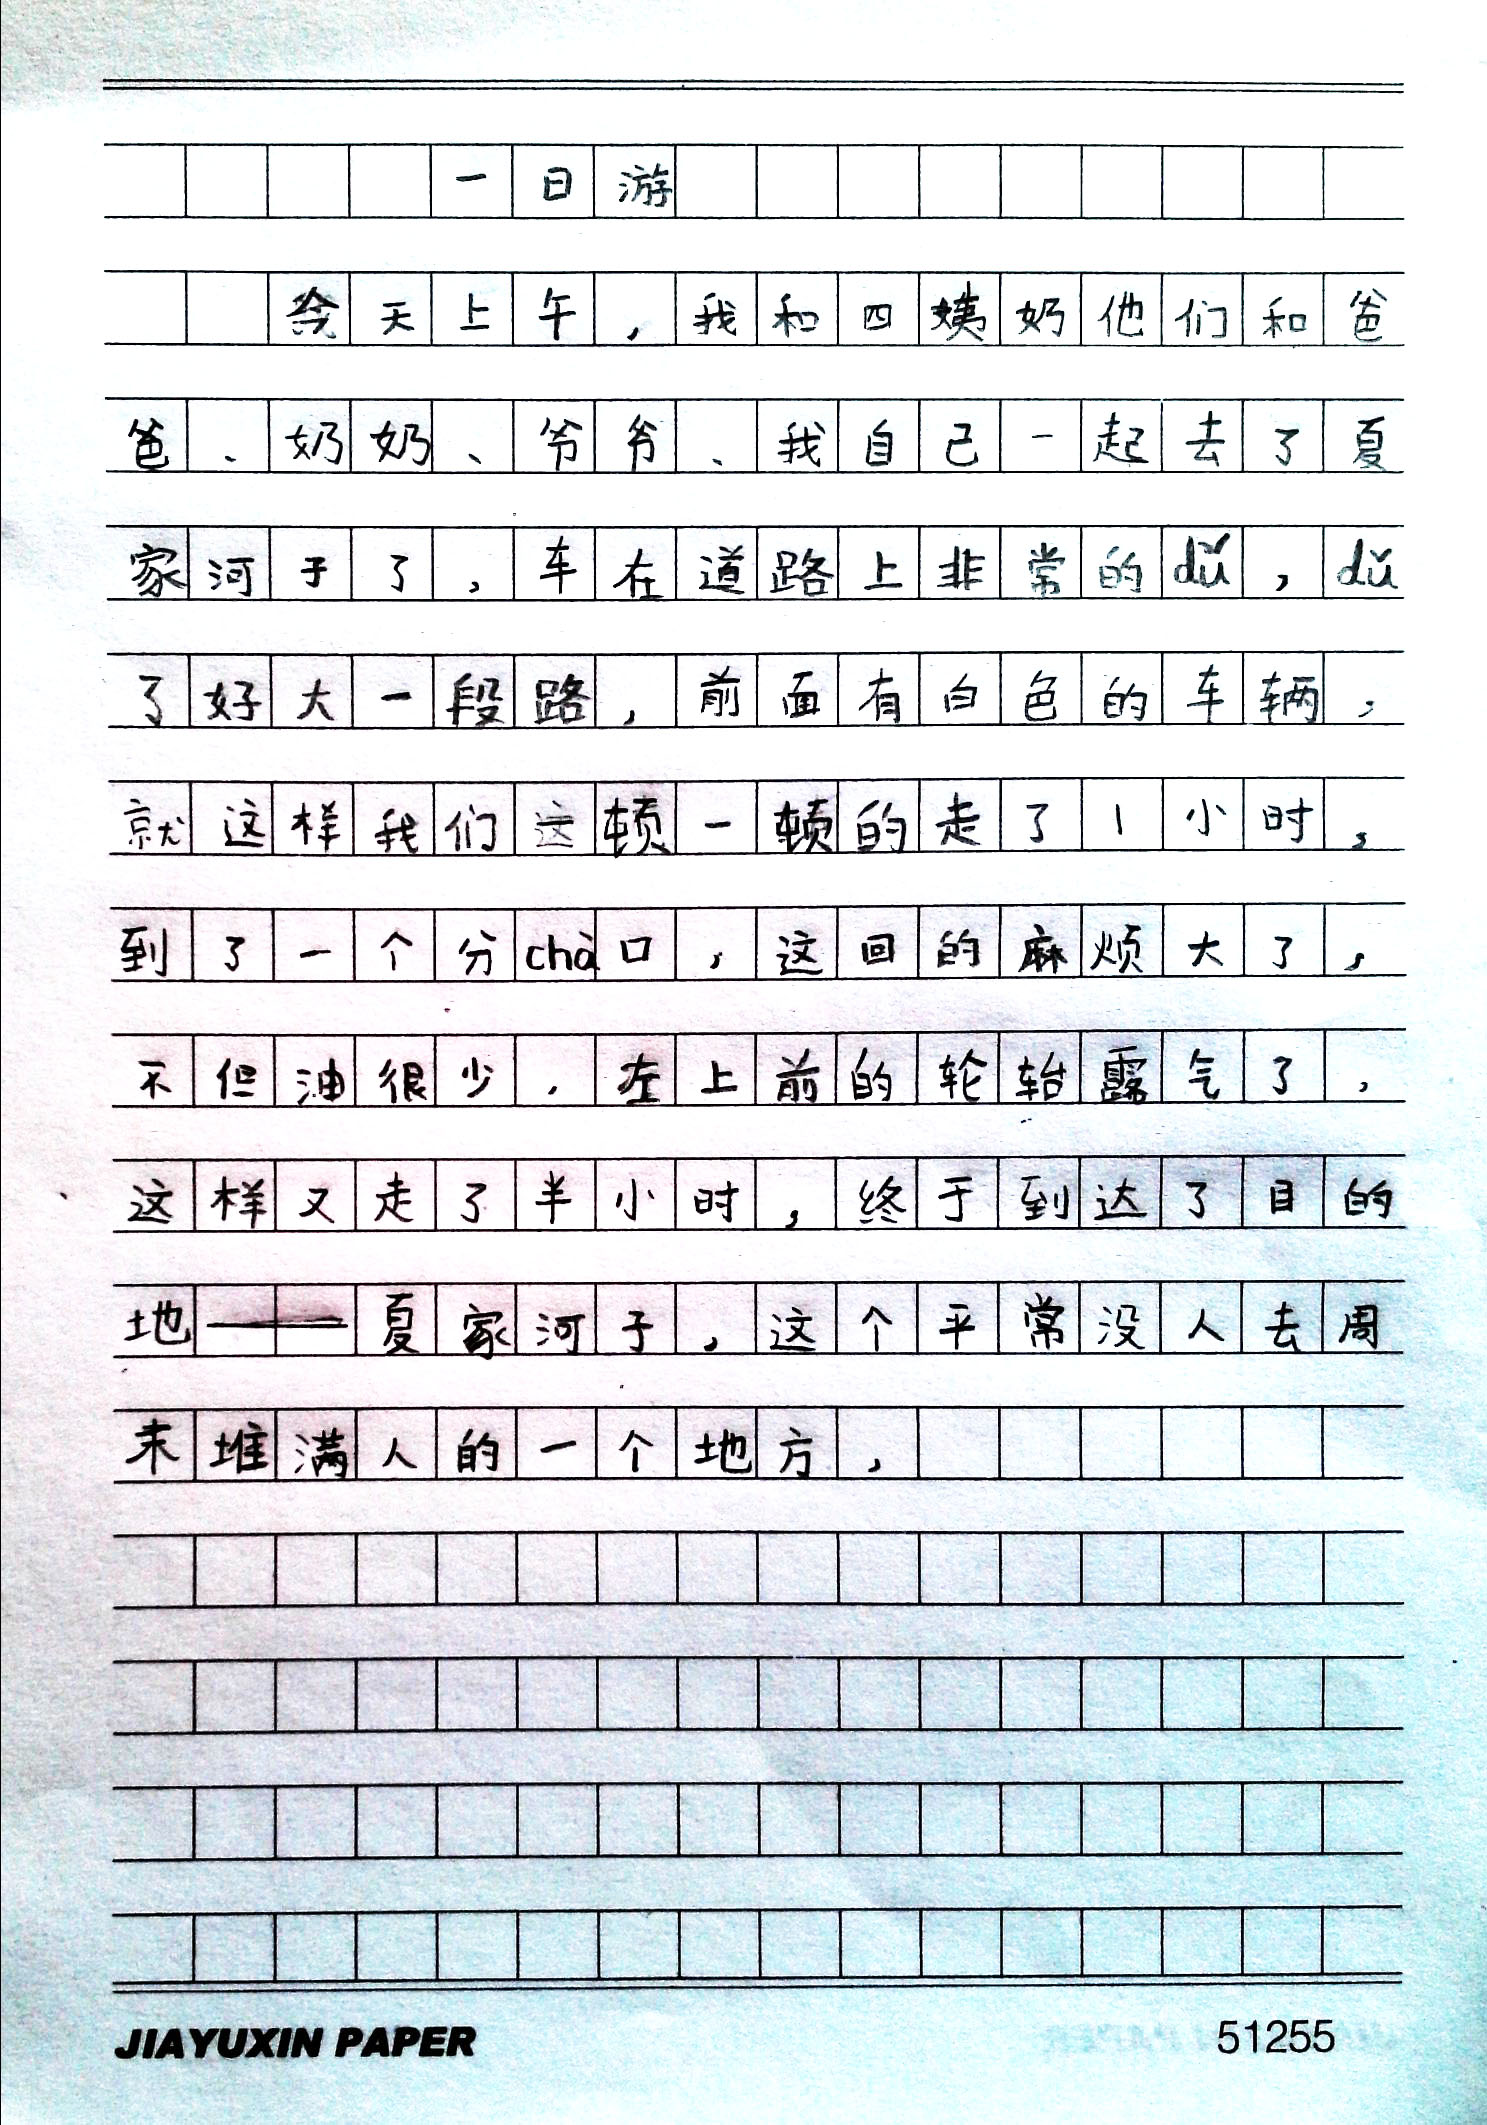 一日游
今天上午，我和四姨奶他们和爸
爸、奶奶、爷爷、我自己一起去了夏
家河子了，车在道路上非常的dǔ，dǔ
了好大一段路，前面有白色的车辆，
就这样我们这顿一顿的走了1小时，
到了一个分chà口，这回的麻烦大了，
不但油很少，左上前的轮轱露气了，
这样又走了半小时，终于到达了目的
地——夏家河子，这个平常没人去周
末堆满人的一个地方，
JIAYUXIN PAPER 51255